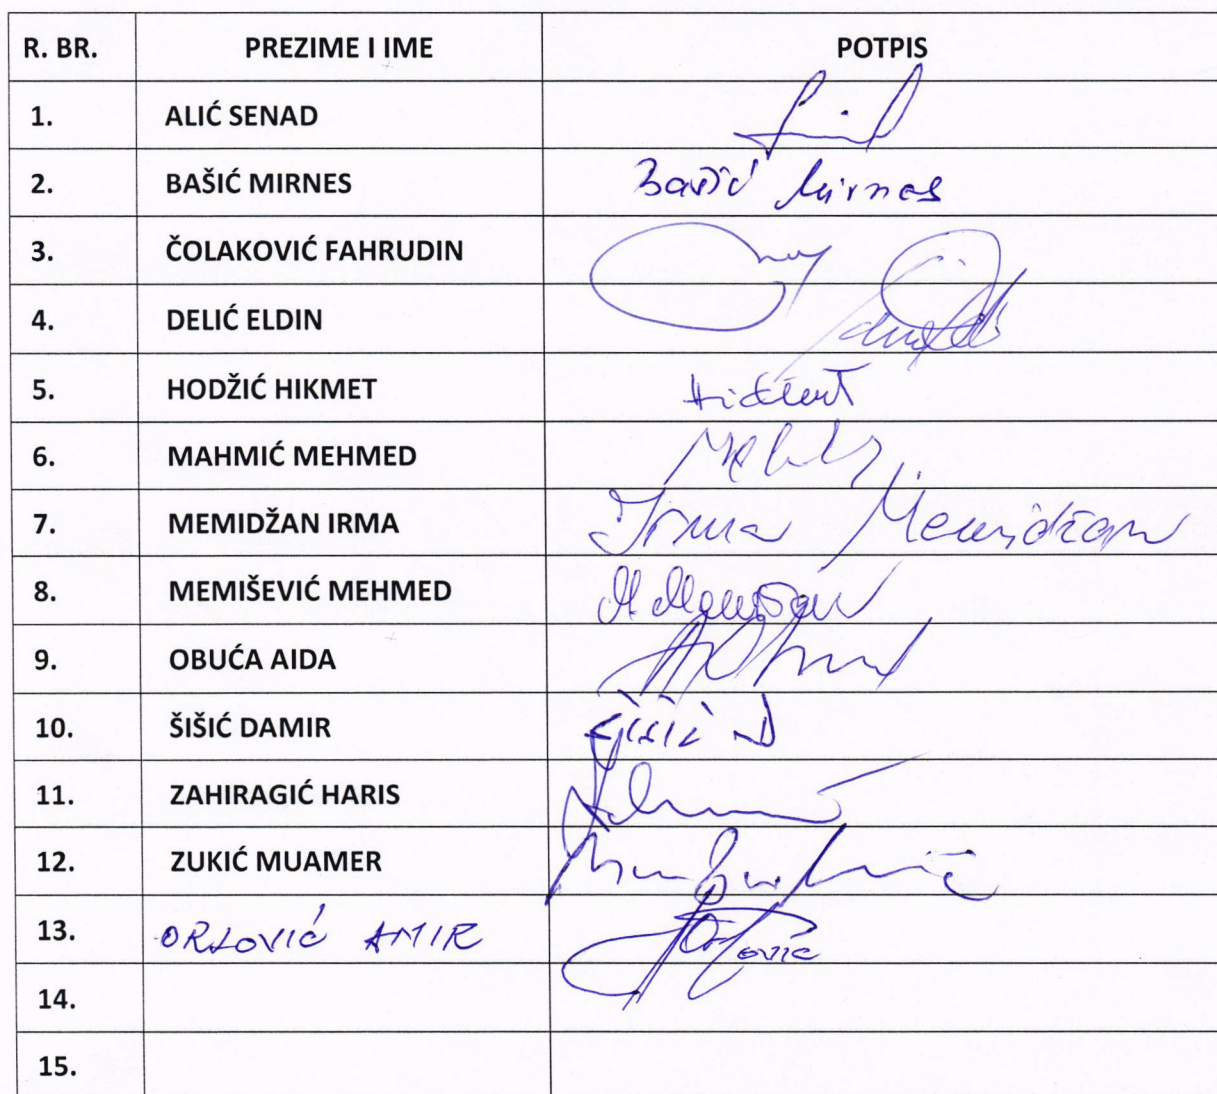 R. BR. PREZIME I IME POTPIS
1. ALIĆ SENAD
2. BAŠIĆ MIRNES Bašić Mirnes
3. ČOLAKOVIĆ FAHRUDIN
4. DELIĆ ELDIN
5. HODŽIĆ HIKMET
6. MAHMIĆ MEHMED
7. MEMIDŽAN IRMA Irma Memidžan
8. MEMIŠEVIĆ MEHMED
9. OBUĆA AIDA
10. ŠIŠIĆ DAMIR Šišić D
11. ZAHIRAGIĆ HARIS
12. ZUKIĆ MUAMER
13. ORLOVIĆ AMIR
14.
15.